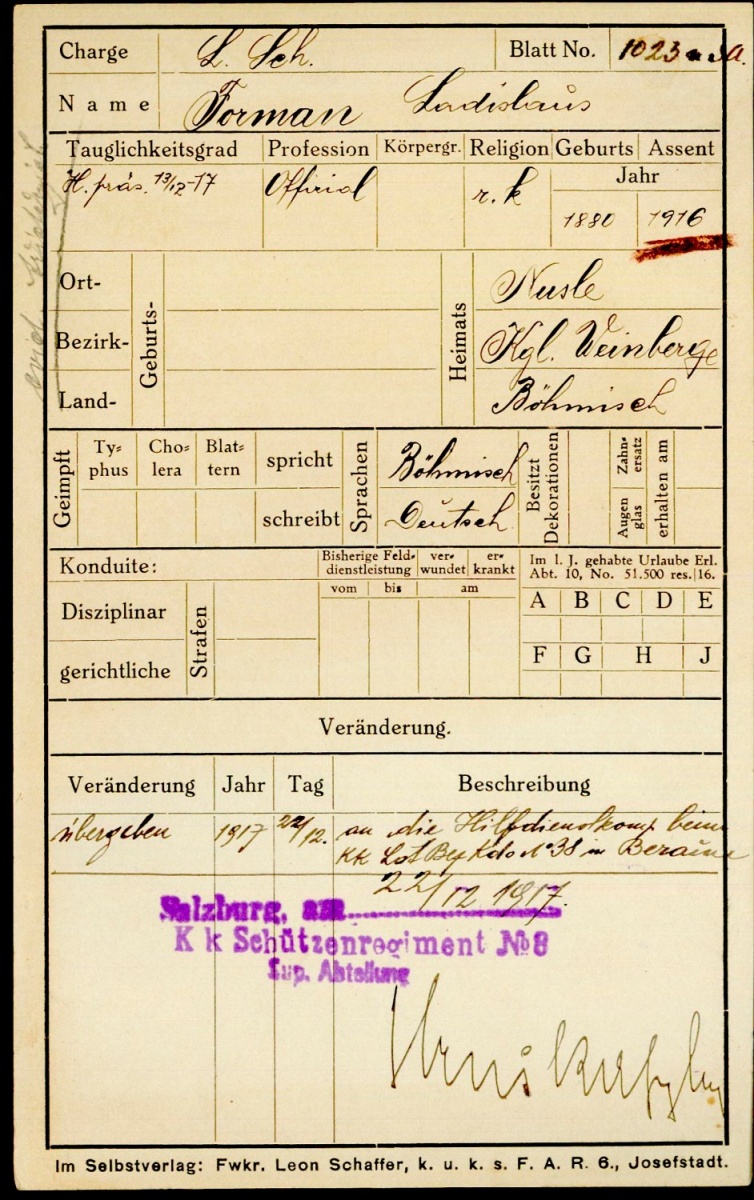 Charge L. Sch. Blatt No. 1023
Name Forman Ladislaus
Tauglichkeitsgrad Profession Körpergr. Religion Geburts Assent
Jahr
H. präs. 13/12-17 Official r. k 1880 1916
Ort- Nusle
Geburts- Heimats
Bezirk- Kgl. Weinberge
Land- Böhmisch
Geimpft Ty=phus Cho=lera Blat=tern spricht Sprachen Böhmisch Besitzt Dekorationen Zahn=ersatz erhalten am
schreibt Deutsch Augen glas
Konduite: Bisherige Feld=dienstleistung ver=wundet er=krankt Im l. J. gehabte Urlaube Erl.
Abt. 10, No. 51.500 res.|16.
vom bis am
Disziplinar A B C D E
Strafen
gerichtliche F G H J
Veränderung.
Veränderung Jahr Tag Beschreibung
übergeben 1917 22/12. an die Hilfsdienstkomp beim
KK Lst Bez Kdo No 38 in Beraun
22/12 1917.
Salzburg, am
K k Schützenregiment No 8
Sup. Abteilung
Im Selbstverlag: Fwkr. Leon Schaffer, k. u. k. s. F. A. R. 6., Josefstadt.